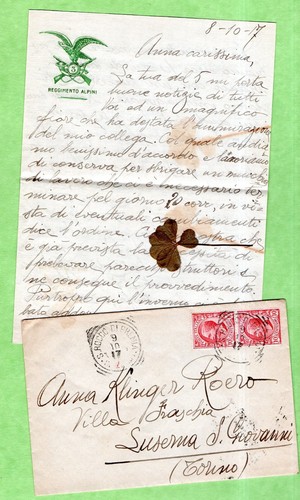 8-10-17
5
REGGIMENTO ALPINI
Anna carissima,
La tua del 5 mi porta
buone notizie di tutti
voi ed un magnifico
fiore che ha destata l'ammirazione
del mio collega. Col quale andia
mo benissimo d'accordo e lavoriamo
di conserva per sbrigare un mucchio
di lavoro che ci è necessario ter
minare pel giorno 20 corr, in vi
sta di eventuali cambiamenti
d'ordine.
è già prevista la
prelevare parecchi istruttori
me consegue il provvedimento.
Purtroppo qui l'inverno
9
10
17
Anna Klinger Roero
Villa Fraschia
Luserna S. Giovanni
(Torino)